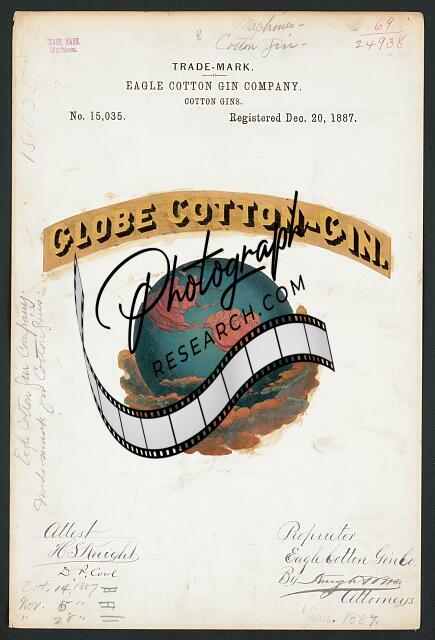 Machines-
& Cotton Gins-
69
24938
TRADE-MARK.
TRADE-MARK.
EAGLE COTTON GIN COMPANY.
COTTON GINS.
No. 15,035.
Registered Dec. 20, 1887.
15,035
GLOBE COTTON-GIN.
Photograph
RESEARCH.COM
Eagle Cotton Gin Company.
Trade-mark for Cotton Gins.
Attest
H S Knight
Proprietor
Eagle Cotton Gin Co.
By
Attorneys
Oct. 14, 1887
Nov. 5 "
" 28 "
Jan. 1887.